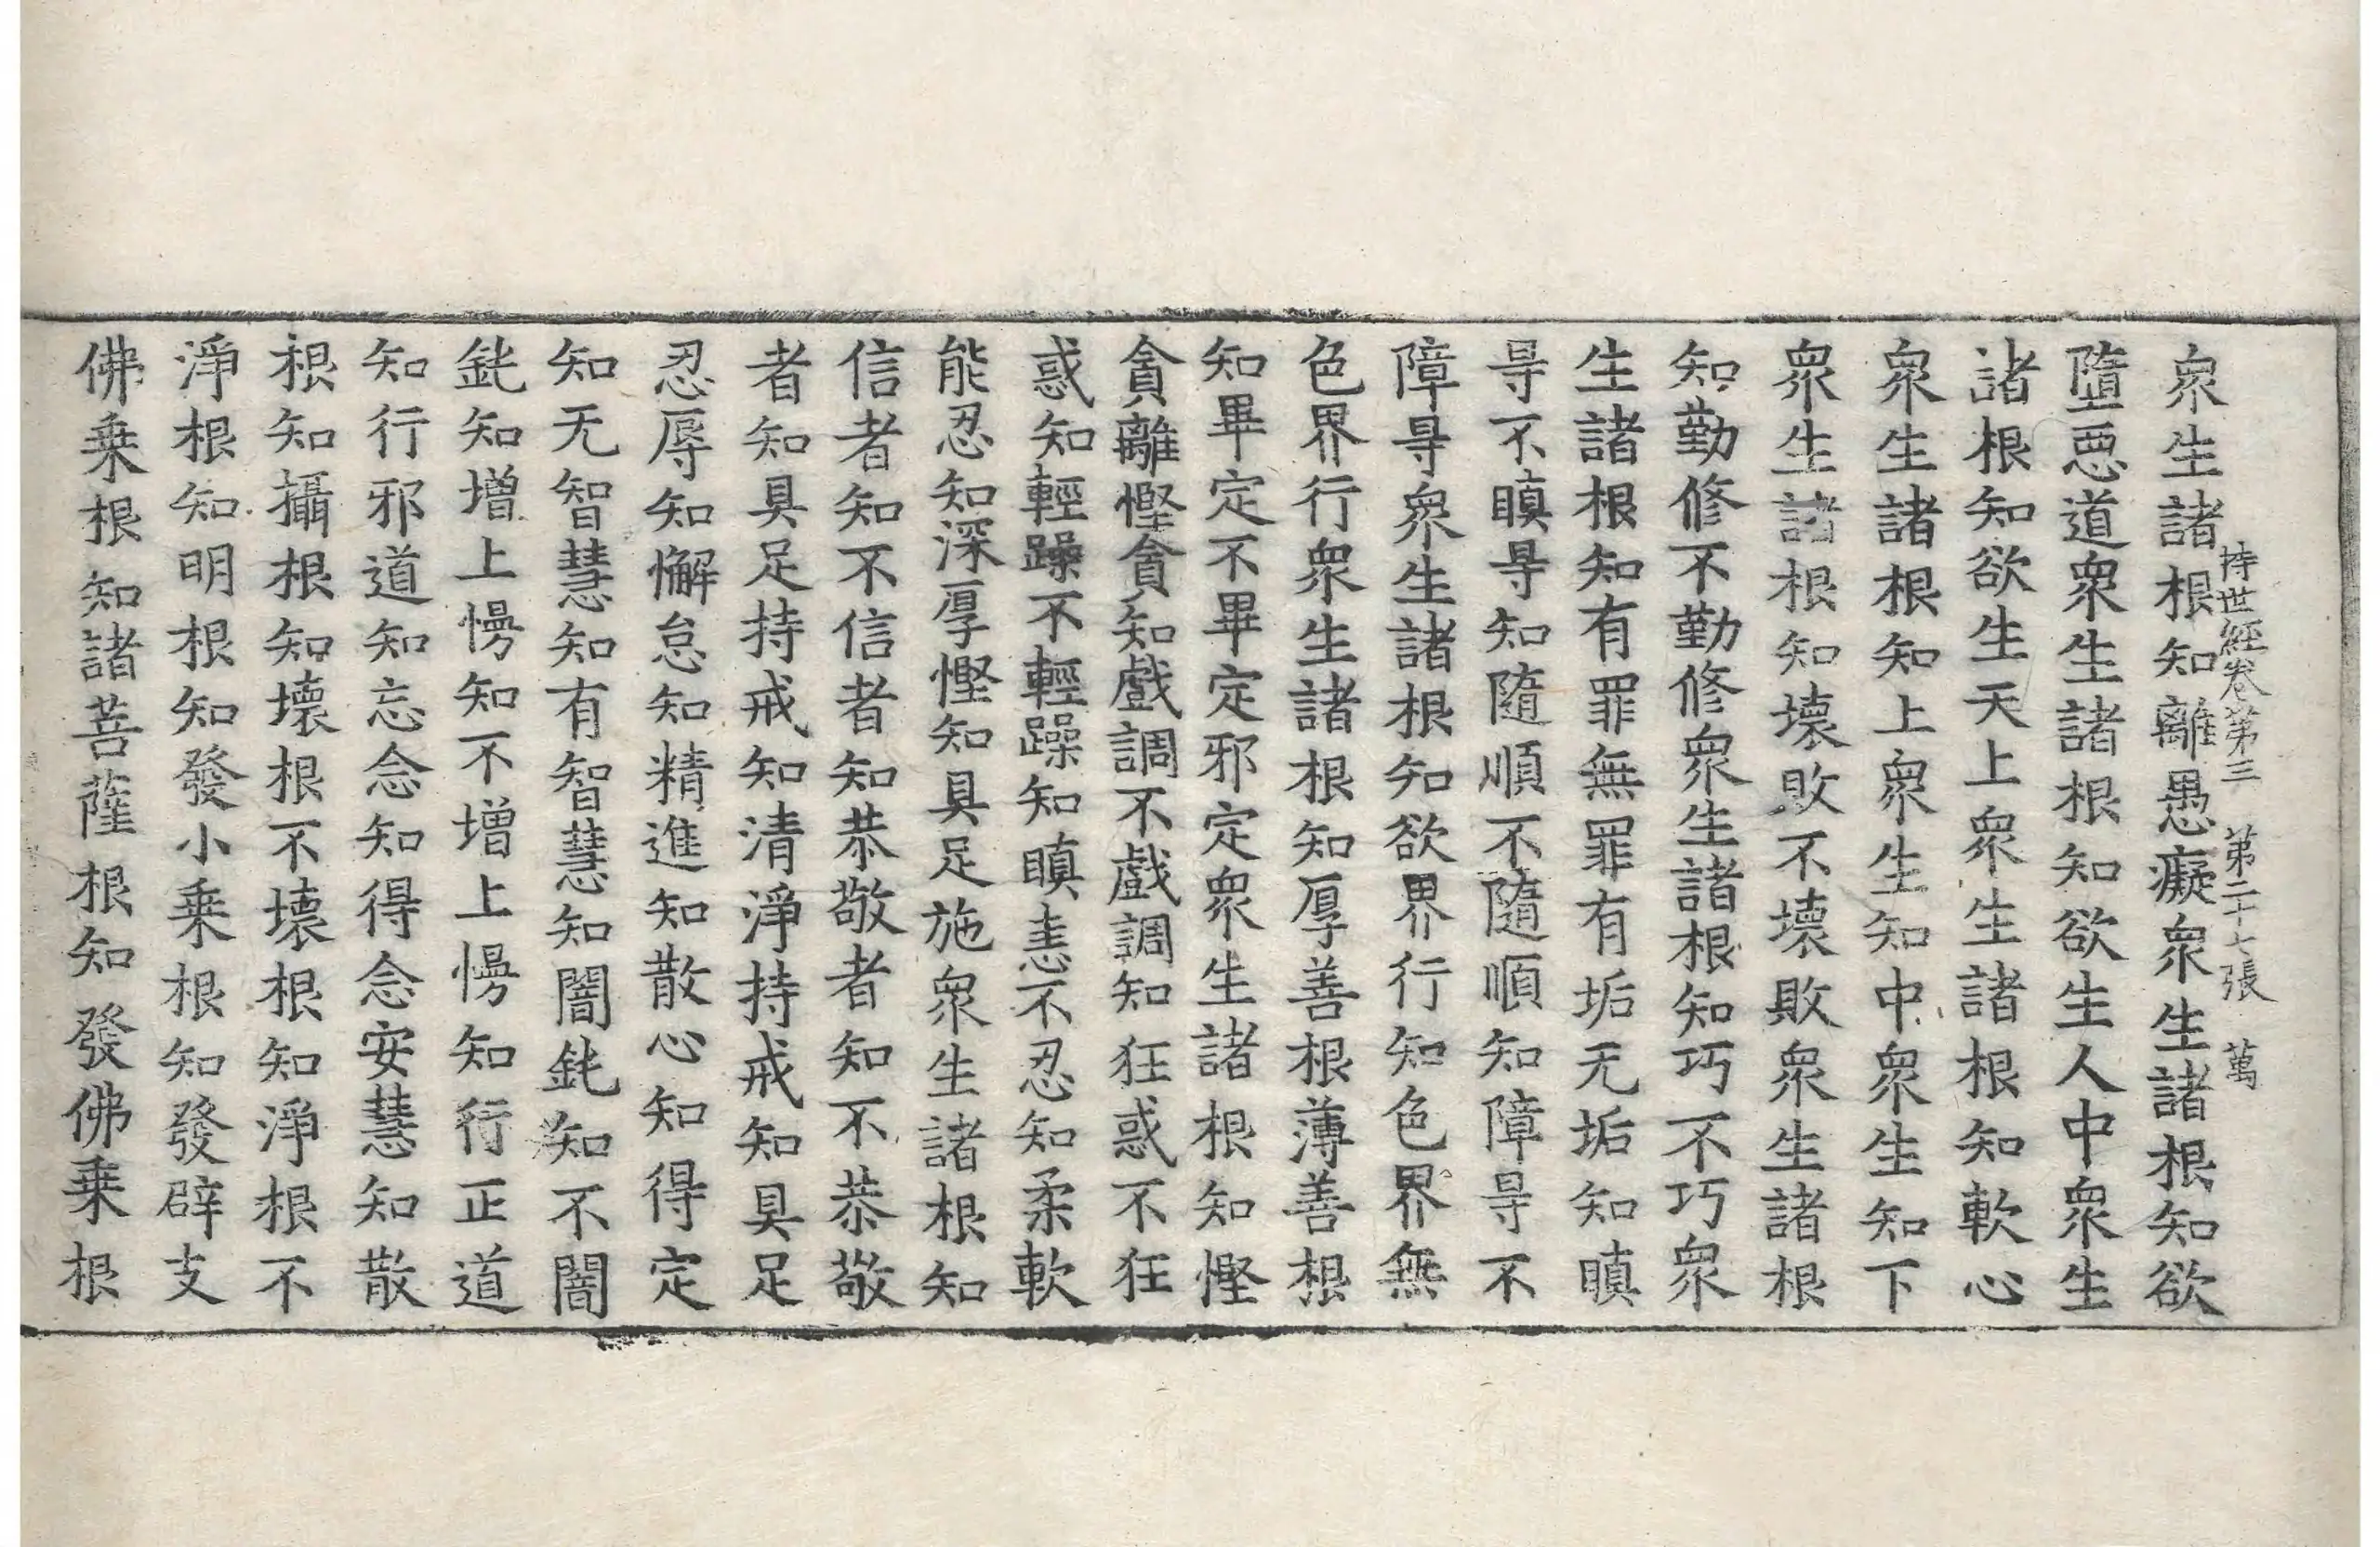 持世經卷第三　第二十七張　萬
衆生諸根知離愚癡衆生諸根知欲
墮惡道衆生諸根知欲生人中衆生
諸根知欲生天上衆生諸根知軟心
衆生諸根知上衆生知中衆生知下
衆生諸根知壞敗不壞敗衆生諸根
知勤修不勤修衆生諸根知巧不巧衆
生諸根知有罪無罪有垢无垢知瞋
㝵不瞋㝵知隨順不隨順知障㝵不
障㝵衆生諸根知欲界行知色界無
色界行衆生諸根知厚善根薄善根
知畢定不畢定邪定衆生諸根知慳
貪離慳貪知戲調不戲調知狂惑不狂
惑知輕躁不輕躁知瞋恚不忍知柔軟
能忍知深厚慳知具足施衆生諸根知
信者知不信者知恭敬者知不恭敬
者知具足持戒知清淨持戒知具足
忍辱知懈怠知精進知散心知得定
知无智慧知有智慧知闇鈍知不闇
鈍知增上慢知不增上慢知行正道
知行邪道知忘念知得念安慧知散
根知攝根知壞根不壞根知淨根不
淨根知明根知發小乘根知發辟支
佛乘根知諸菩薩根知發佛乘根